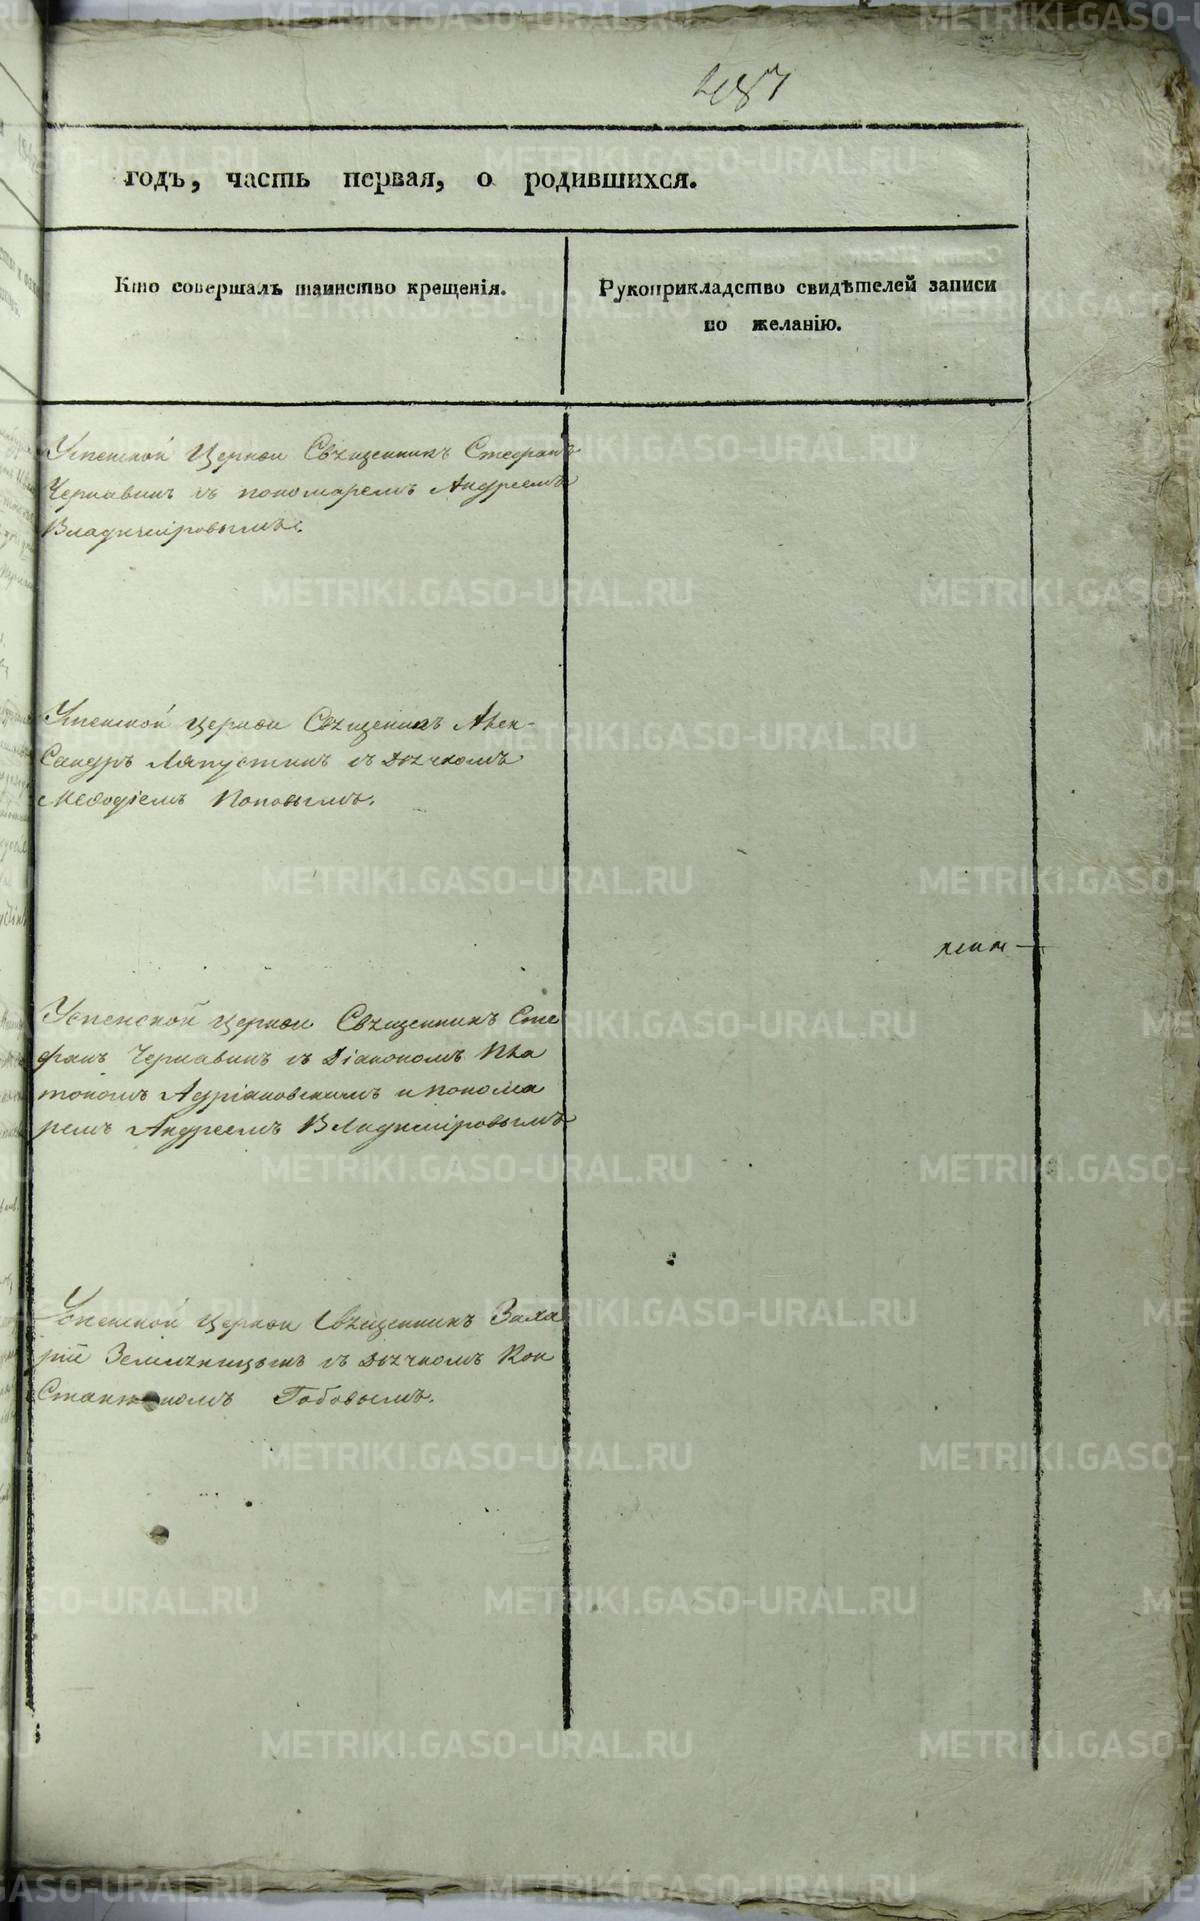 годъ, часть первая, о родившихся.
Кто совершалъ таинство крещенія.
Рукоприкладство свидѣтелей записи
по желанію.
Успенской Церкви Священникъ Стефанъ
Чернавинъ съ пономаремъ Андреемъ
Владиміровымъ.
Успенской Церкви Священникъ Алек-
сандръ Ляпустинъ съ Дьячкомъ
Меѳодіемъ Поповымъ.
Успенской Церкви Священникъ Сте
фанъ Чернавинъ съ Діакономъ Пла
тономъ Адріановскимъ и понома
ремъ Андреемъ Владиміровымъ
Успенской Церкви Священникъ Заха
рій Земляницынъ съ Дьячкомъ Кон
стантиномъ
METRIKI.GASO-URAL.RU